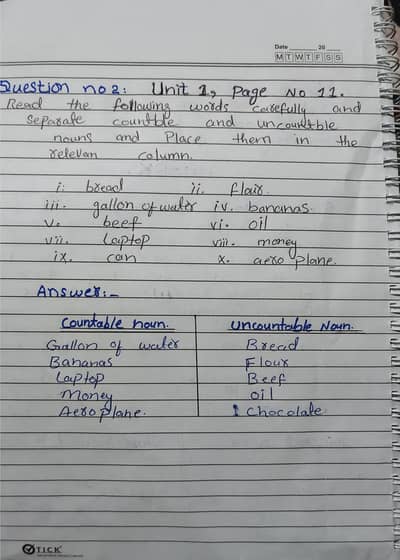 Date 20
M T W T F S S
Question no 2: Unit 1, Page No 11.
Read the following words carefully and
separate countble and uncountble
nouns and Place them in the
relevan column.
i. bread ii. flair
iii. gallon of water iv. bananas.
v. beef vi. oil
vii. Laptop viii. money
ix. can x. aero plane.
Answer:-
Countable noun. Uncountable Noun.
Gallon of water Bread
Bananas Flour
Laptop Beef
Money oil
Aeroplane. Chocolate
TICK